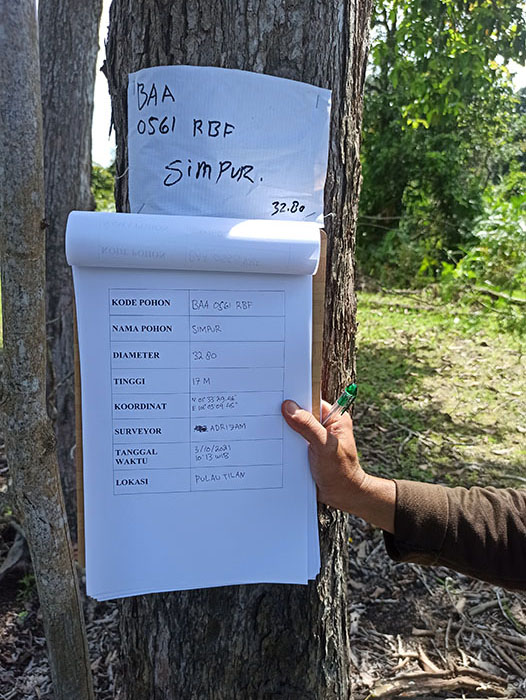 BAA
0561 RBF
SIMPUR.
32.80
KODE POHON BAA 0561 RBF
NAMA POHON SIMPUR
DIAMETER 32.80
TINGGI 17 M
KOORDINAT
SURVEYOR
TANGGAL 3/10/2021
WAKTU 10:13 WIB
LOKASI PULAU TILAN